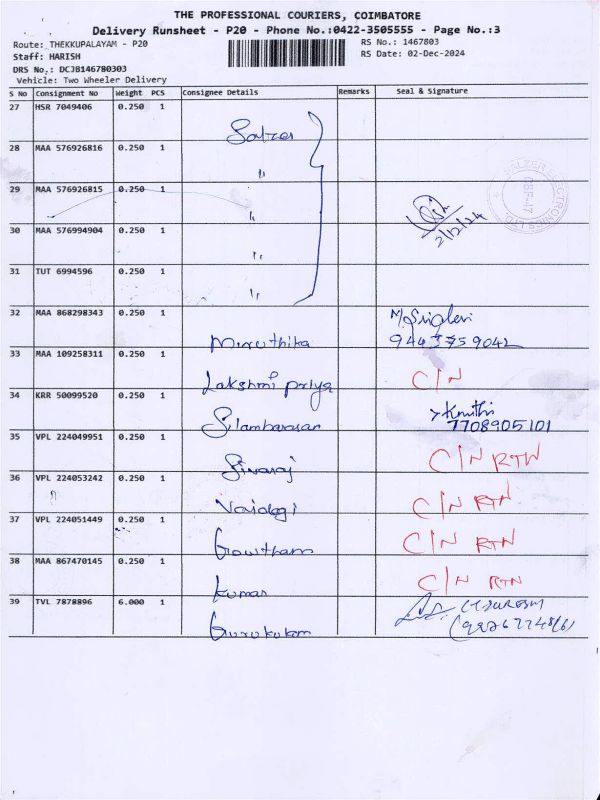 THE PROFESSIONAL COURIERS, COIMBATORE
Delivery Runsheet - P20 - Phone No.:0422-3505555 - Page No.:3
Route: THEKKUPALAYAM - P20 RS No.: 1467803
Staff: HARISH RS Date: 02-Dec-2024
DRS No.: DCJB146780303
Vehicle: Two Wheeler Delivery
S No Consignment No Weight PCS Consignee Details Remarks Seal & Signature
27 HSR 7049406 0.250 1
28 MAA 576926816 0.250 1 "
29 MAA 576926815 0.250 1 "
2/12/24
30 MAA 576994904 0.250 1 "
31 TUT 6994596 0.250 1 "
32 MAA 868298343 0.250 1 Miruthika
9443759042
33 MAA 109258311 0.250 1 Lakshmi priya C/N
34 KRR 50099520 0.250 1 Silambarasan
7708905101
35 VPL 224049951 0.250 1 Sivaraj C/N RTN
36 VPL 224053242 0.250 1 C/N RTN
37 VPL 224051449 0.250 1 Gowtham C/N RTN
38 MAA 867470145 0.250 1 Kumar C/N RTN
39 TVL 7878896 6.000 1 Gurukulam